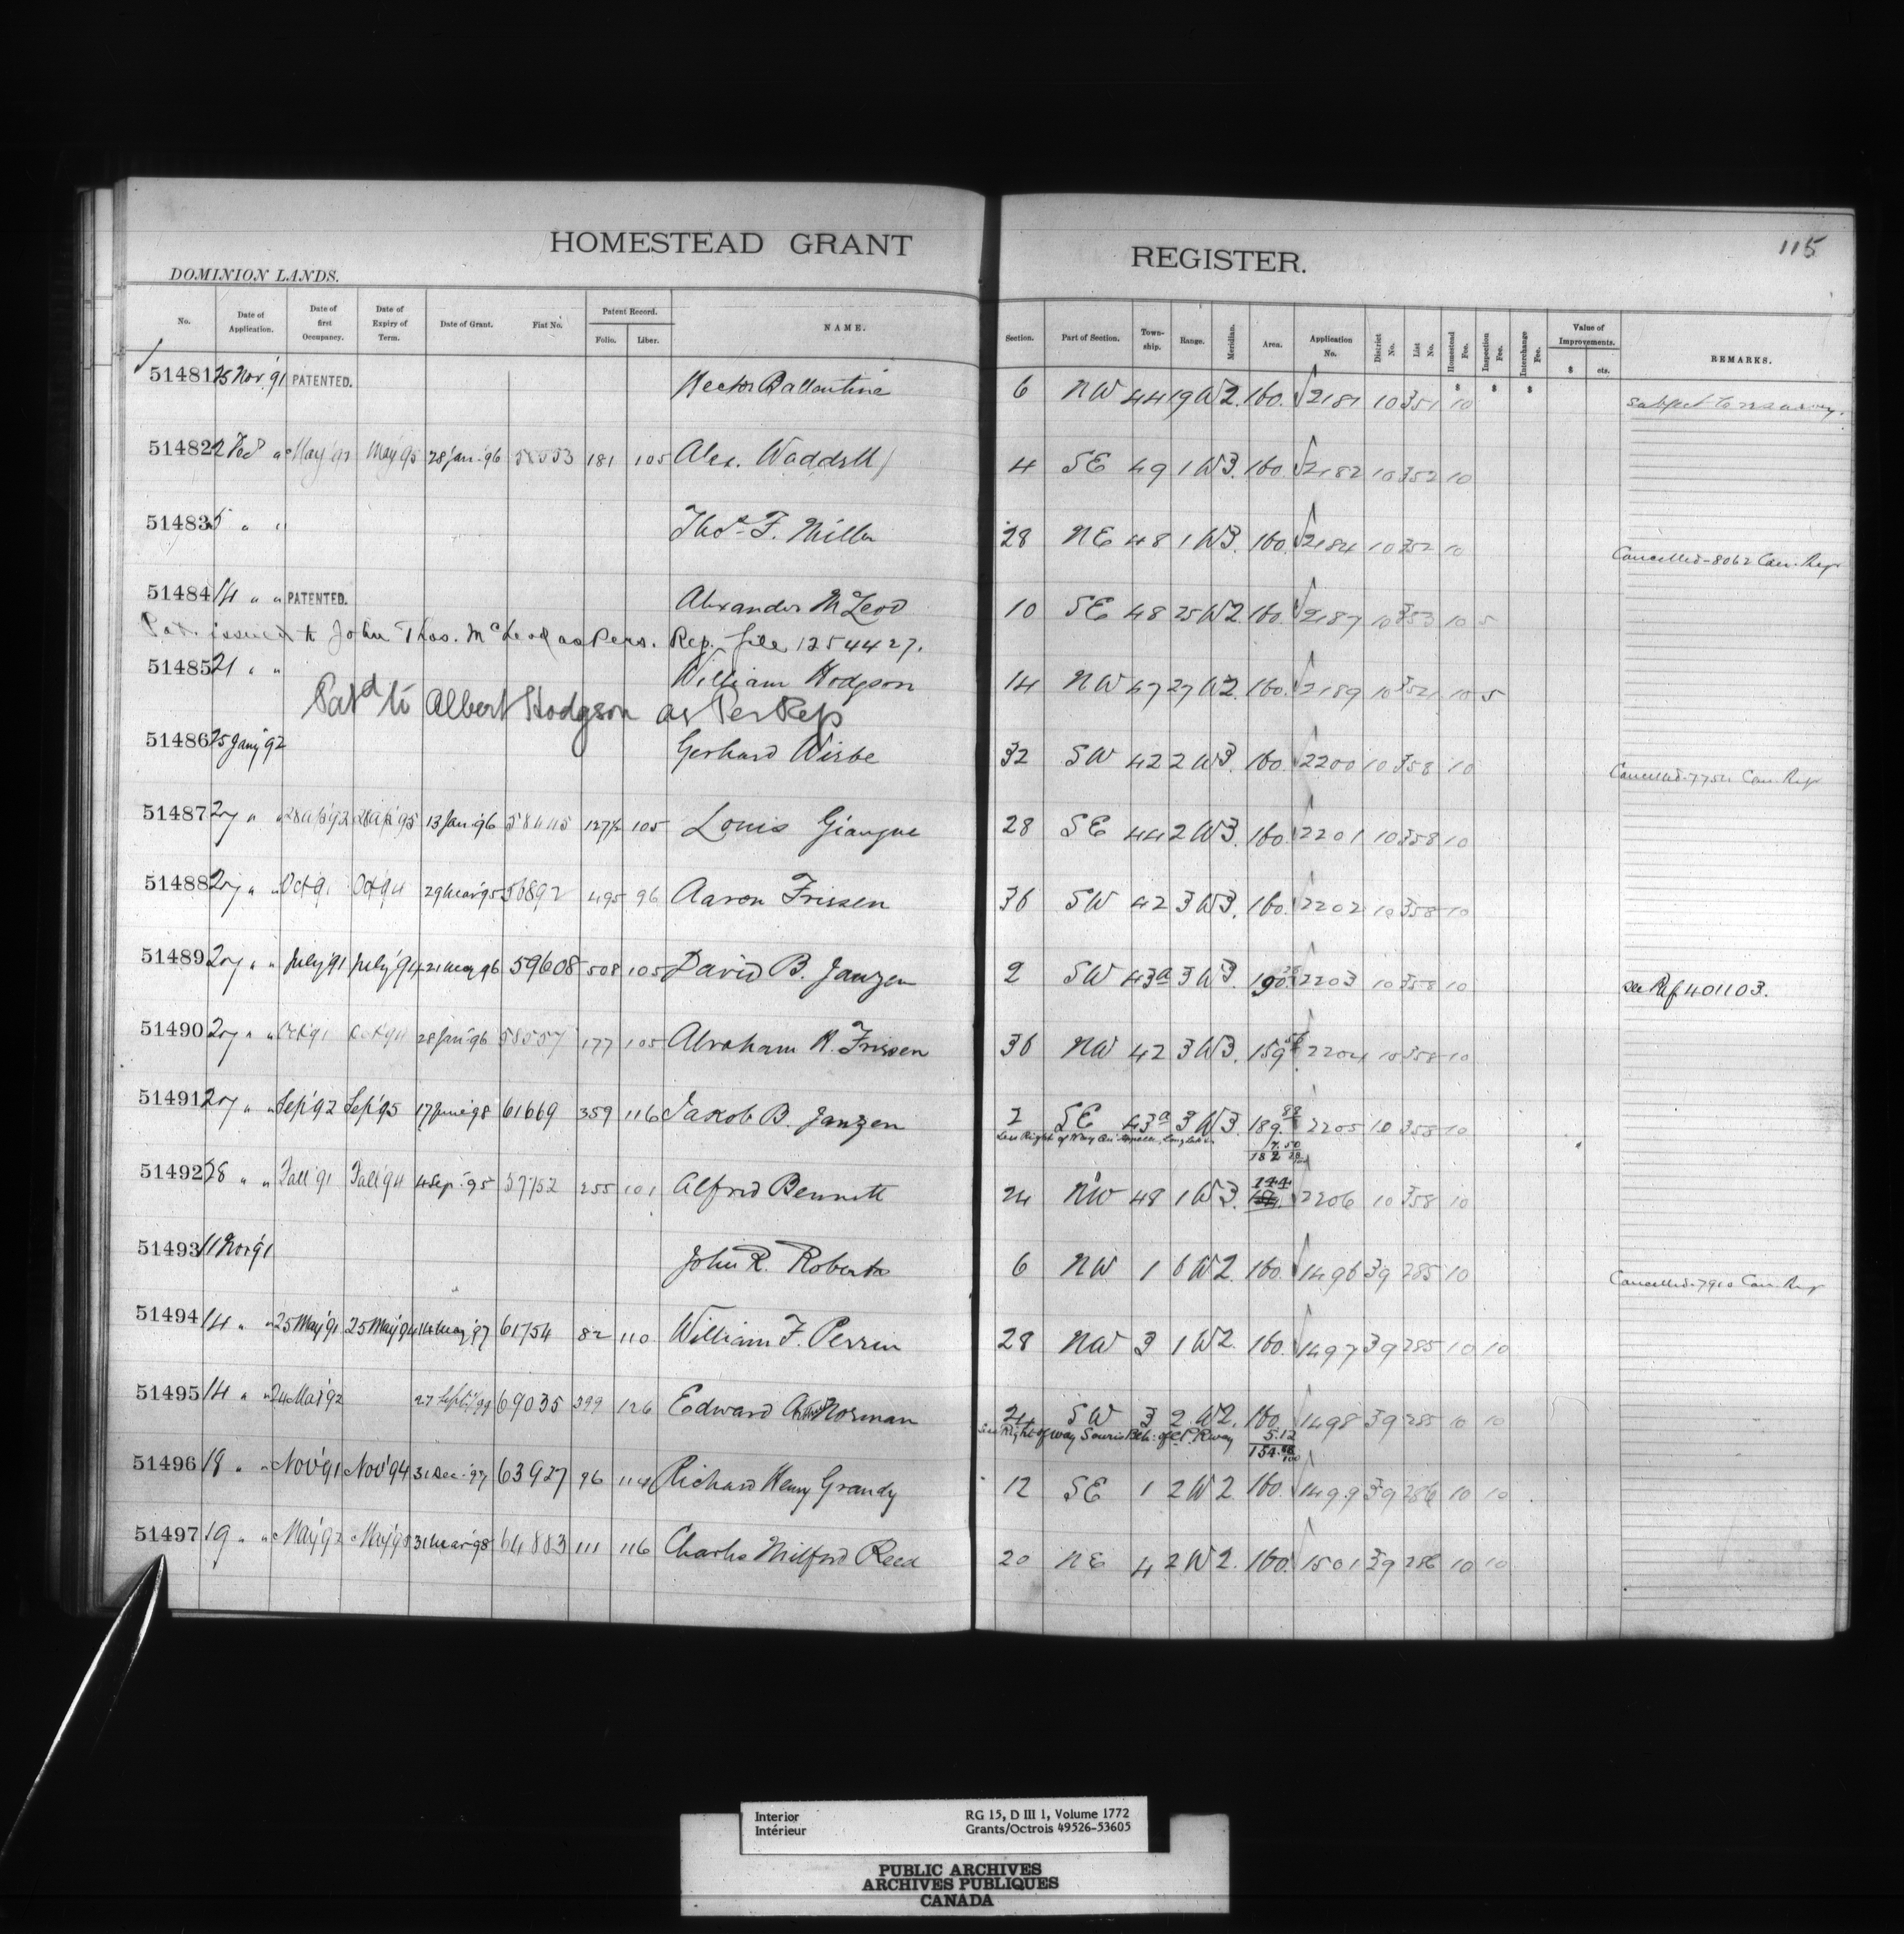 HOMESTEAD GRANT REGISTER.
115
DOMINION LANDS.
No. Date of Application. Date of first Occupancy. Date of Expiry of Term. Date of Grant. Fiat No. Patent Record. Folio. Liber. NAME. Section. Part of Section. Township. Range. Meridian. Area. Application No. District No. List No. Homestead Fee. Inspection Fee. Interchange Fee. Value of Improvements. $ cts. REMARKS.
$ $ $
51481 25 Nov. '91 PATENTED. Hector Ballantine 6 NW 44 19 W2. 160. 2181 10 351 10
51482 2 Dec " May '92 May '95 28 Jan. '96 58553 181 105 Alex. Waddell 4 SE 49 1 W3. 160. 2182 10 352 10
51483 5 " " Thos. F. Miller 28 NE 48 1 W3. 160. 2184 10 352 10 Cancelled-8062 Can. Regr
51484 14 " " PATENTED. Alexander McLeod 10 SE 48 25 W2. 160. 2187 10 353 10 5
Pat. issued to John Thos. McLeod as Pers. Rep. file 1254427.
51485 21 " " William Hodgson 14 NW 47 27 W2. 160. 2189 10 10 5
Patd to Albert Hodgson as Per Rep
51486 25 Jany '92 Gerhard Wiebe 32 SW 42 2 W3. 160. 2200 10 358 10 Cancelled-7754 Can. Regr
51487 27 " " 28 Ap '92 28 Ap '95 13 Jan. '96 58445 127½ 105 Louis Giauque 28 SE 44 2 W3. 160. 2201 10 358 10
51488 27 " " Oct '91 Oct '94 29 Mar '95 56892 495 96 Aaron Friesen 36 SW 42 3 W3. 160. 2202 10 358 10
51489 27 " " July '91 July '94 21 May 96 59608 508 105 David B. Janzen 2 SW 43a 3 W3 190. 2203 10 358 10 See Ref 401103.
51490 27 " " Oct '91 Oct '94 28 Jan '96 58557 177 105 Abraham H. Friesen 36 NW 42 3 W3. 159. 2204 10 358 10
51491 27 " " Sep '92 Sep '95 17 June '98 61669 359 116 Jakob B. Janzen 2 SE 43a 3 W3. 189. 88 2205 10 358 10
Less Right of Way
7.50
182
51492 28 " " Fall '91 Fall '94 4 Sep. '95 57752 255 101 Alfred Bennett 24 NW 48 1 W3. 144 2206 10 358 10
51493 11 Nov '91 John R. Roberts 6 NW 1 6 W2. 160. 1496 39 285 10 Cancelled-7910 Can. Reg
51494 14 " " 25 May '91 25 May '94 14 May '97 61754 82 110 William F. Perrin 28 NW 3 1 W2. 160. 1497 39 285 10 10
51495 14 " " 24 Mar '92 27 Sept '99 69035 399 126 Edward Arthur Norman 24 SW 3 2 W2. 160. 1498 39 285 10 10
Less Right of way Souris Bch. of C.P. Rway 5.12
154.88/100
51496 18 " " Nov '91 Nov '94 31 Dec. '97 63927 96 114 Richard Henry Grandy 12 SE 1 2 W2. 160. 1499 39 286 10 10
51497 19 " " May '92 May '95 31 Mar '98 64883 111 116 Charles Milford Reed 20 NE 4 2 W2. 160. 1501 39 286 10 10
Interior
Intérieur
RG 15, D III 1, Volume 1772
Grants/Octrois 49526-53605
PUBLIC ARCHIVES
ARCHIVES PUBLIQUES
CANADA